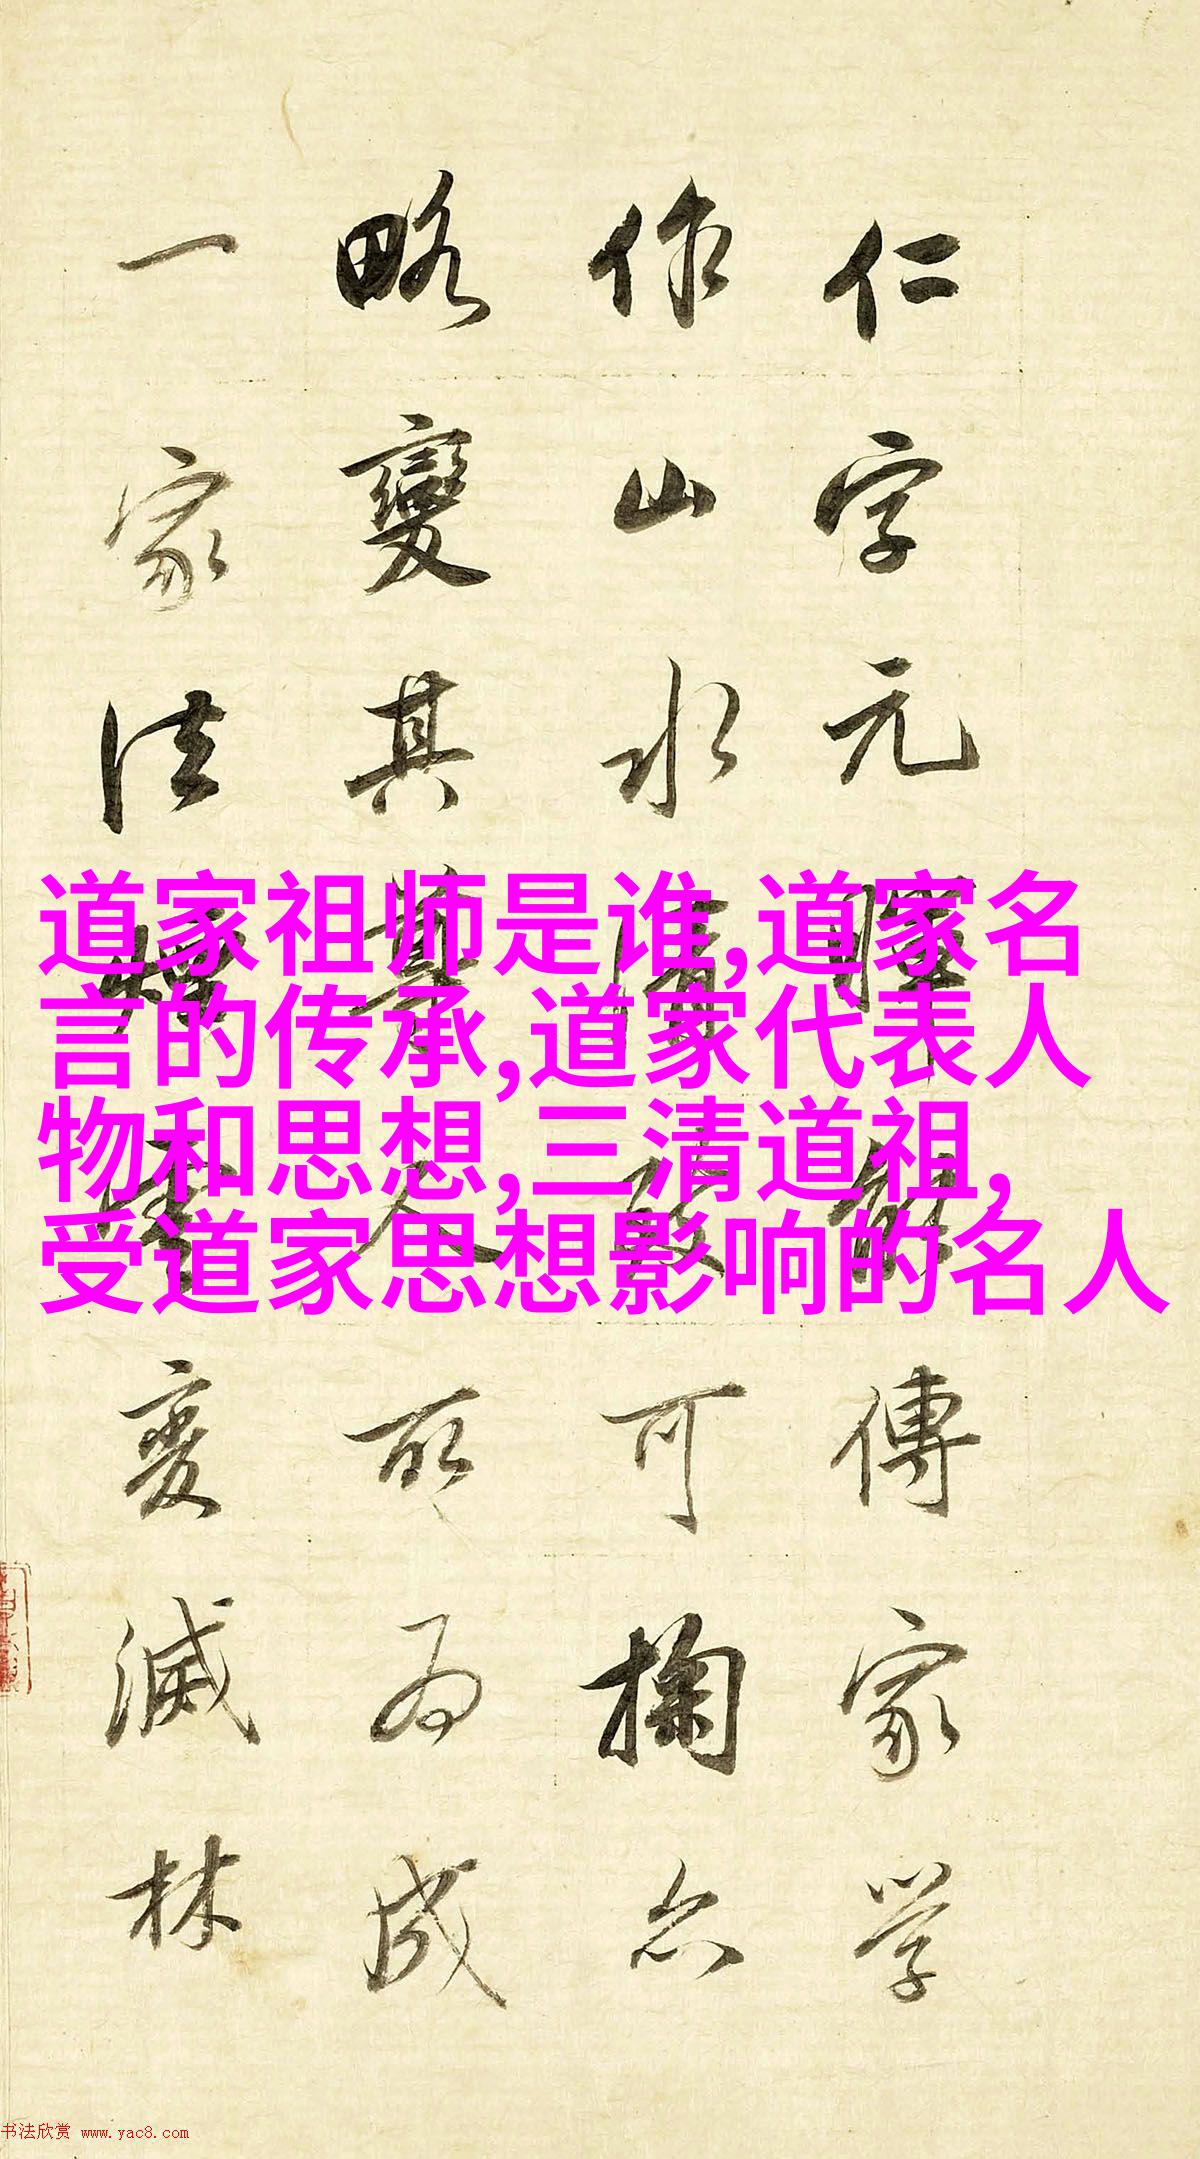 仁字元暉傳家學
作山水清可掬亦
略變其人所為成
一家法變滅林
道家祖师是谁,道家名
言的传承,道家代表人
物和思想,三清道祖,
受道家思想影响的名人
书法欣赏 www.yac8.com